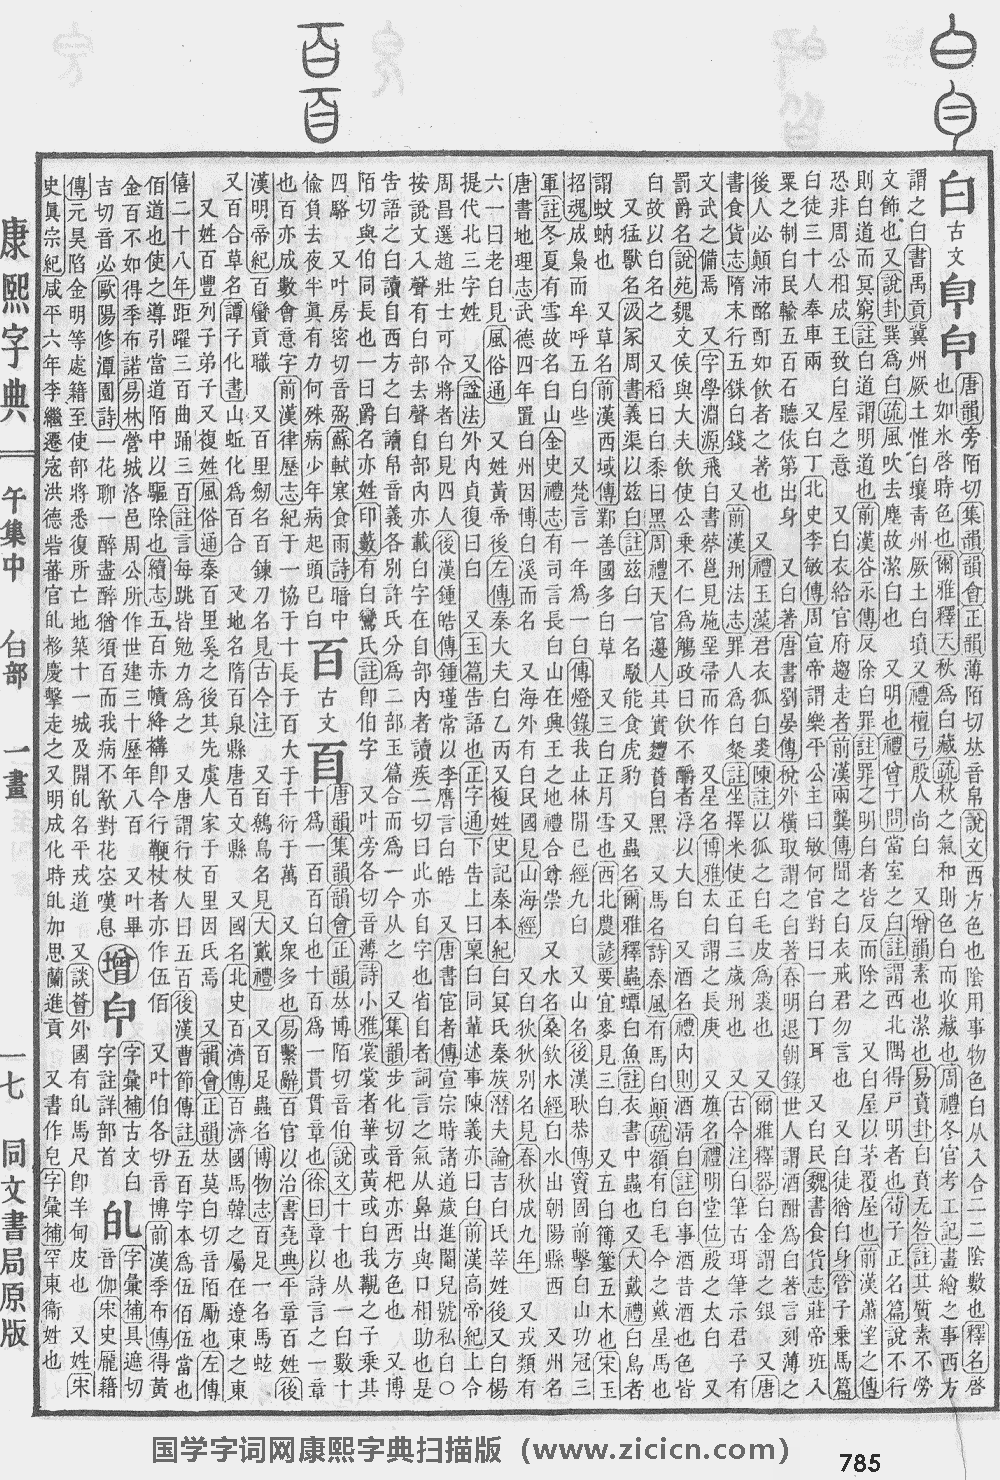 白 古文 𦣺 𤽀
唐韻旁陌切集韻韻會正韻薄陌切𠀤音帛說文西方色也陰用事物色白从入合二二陰數也釋名啓
也如氷啓時色也爾雅釋天秋爲白藏疏秋之氣和則色白而收藏也周禮冬官考工記畫繪之事西方
謂之白書禹貢冀州厥土惟白壤靑州厥土白墳又禮檀弓殷人尚白 又增韻素也潔也易賁卦白賁无咎註其質素不勞
文飾也又說卦巽爲白疏風吹去塵故潔白也 又明也禮曾子問當室之白註謂西北隅得戸明者也荀子正名篇說不行
則白道而冥窮註白道謂明道也前漢谷永傳反除白罪註罪之明白者皆反而除之 又白屋以茅覆屋也前漢蕭望之傳
恐非周公相成王致白屋之意 又白衣給官府趨走者前漢兩龔傳聞之白衣戒君勿言也 又白徒猶白身管子乗馬篇
白徒三十人奉車兩 又白丁北史李敏傳周宣帝謂樂平公主曰敏何官對曰一白丁耳 又白民魏書食貨志莊帝班入
粟之制白民輸五百石聽依第出身 又白著唐書劉晏傳稅外橫取謂之白著春明退朝錄世人謂酒酣爲白著言刻薄之
後人必顚沛酩酊如飲者之著也 又禮玉藻君衣狐白裘陳註以狐之白毛皮爲裘也 又爾雅釋器白金謂之銀 又唐
書食貨志隋末行五銖白錢 又前漢刑法志罪人爲白粲註坐擇米使正白三歲刑也 又古今注白筆古珥筆示君子有
文武之備焉 又字學淵源飛白書蔡邕見施堊帚而作 又星名博雅太白謂之長庚 又旗名禮明堂位殷之太白 又
罰爵名說苑魏文侯與大夫飲使公乗不仁爲觴政曰飲不釂者浮以大白 又酒名禮內則酒淸白註白事酒昔酒也色皆
白故以白名之 又稻曰白黍曰黑周禮天官籩人其實麷蕡白黑 又馬名詩秦風有馬白顚疏額有白毛今之戴星馬也
又猛獸名汲冢周書義渠以兹白註兹白一名駮能食虎豹 又蟲名爾雅釋蟲蟫白魚註衣書中蟲也又大戴禮白鳥者
謂蚊蚋也 又草名前漢西域傳鄯善國多白草 又三白正月雪也西北農諺要宜麥見三白 又五白簙簺五木也宋玉
招魂成梟而牟呼五白些 又梵言一年爲一白傳燈錄我止林閒已經九白 又山名後漢耿恭傳竇固前擊白山功冠三
軍註冬夏有雪故名白山金史禮志有司言長白山在興王之地禮合尊崇 又水名桑欽水經白水出朝陽縣西 又州名
唐書地理志武德四年置白州因博白溪而名 又海外有白民國見山海經 又白狄狄別名見春秋成九年 又戎類有
六一曰老白見風俗通 又姓黃帝後左傳秦大夫白乙丙又複姓史記秦本紀白冥氏秦族潛夫論吉白氏莘姓後又白楊
提代北三字姓 又諡法外內貞復曰白 又玉篇告語也正字通下告上曰稟白同輩述事陳義亦曰白前漢高帝紀上令
周昌選趙壯士可令將者白見四人後漢鍾皓傳鍾瑾常以李膺言白皓 又唐書宦者傳宣宗時諸道歲進閹兒號私白〇
按說文入聲有白部去聲自部內亦載白字在自部內者讀疾二切曰此亦自字也省自者詞言之气从鼻出與口相助也是
告語之白讀自西方之白讀帛音義各別許氏分爲二部玉篇合而爲一今从之 又集韻步化切音杷亦西方色也 又博
陌切與伯同長也一曰爵名亦姓印藪有白鸞氏註卽伯字 又叶旁各切音薄詩小雅裳裳者華或黃或白我覯之子乗其
四駱 又叶房密切音弼蘇軾寒食雨詩暗中
偸負去夜半眞有力何殊病少年病起頭已白
百 古文 𦣻
唐韻集韻韻會正韻𠀤博陌切音伯說文十十也从一白數十
十爲一百百白也十百爲一貫貫章也徐曰章以詩言之一章
也百亦成數會意字前漢律歷志紀于一協于十長于百大于千衍于萬 又衆多也易繫辭百官以治書堯典平章百姓後
漢明帝紀百蠻貢職 又百里劒名百鍊刀名見古今注 又百鷯鳥名見大戴禮 又百足蟲名博物志百足一名馬蚿
又百合草名譚子化書山蚯化爲百合 又地名隋百泉縣唐百丈縣 又國名北史百濟傳百濟國馬韓之屬在遼東之東
又姓百豐列子弟子又複姓風俗通秦百里奚之後其先虞人家于百里因氏焉 又韻會正韻𠀤莫白切音陌勵也左傳
僖二十八年距躍三百曲踊三百註言每跳皆勉力爲之 又唐謂行杖人曰五百後漢曹節傳註五百字本爲伍佰伍當也
佰道也使之導引當道陌中以驅除也續志五百赤幘絳褠卽今行鞭杖者亦作伍佰 又叶伯各切音博前漢季布傳得黃
金百不如得季布諾易林營城洛邑周公所作世建三十歷年八百 又叶畢
吉切音必歐陽修潭園詩一花聊一醉盡醉猶須百而我病不飮對花空嘆息
增
字彙補古文白
字註詳部首
癿
字彙補具遮切
音伽宋史龐籍
傳元昊陷金明等處籍至使部將悉復所亡地築十一城及開癿名平戎道 又談薈外國有癿馬尺卽羊甸皮也 又姓宋
史眞宗紀咸平六年李繼遷寇洪德砦蕃官癿移慶擊走之又明成化時癿加思蘭進貢 又書作皀字彙補罕東衞姓也
康熙字典 午集中 白部 一畫 一七 同文書局原版
国学字词网康熙字典扫描版（www.zicicn.com）
785